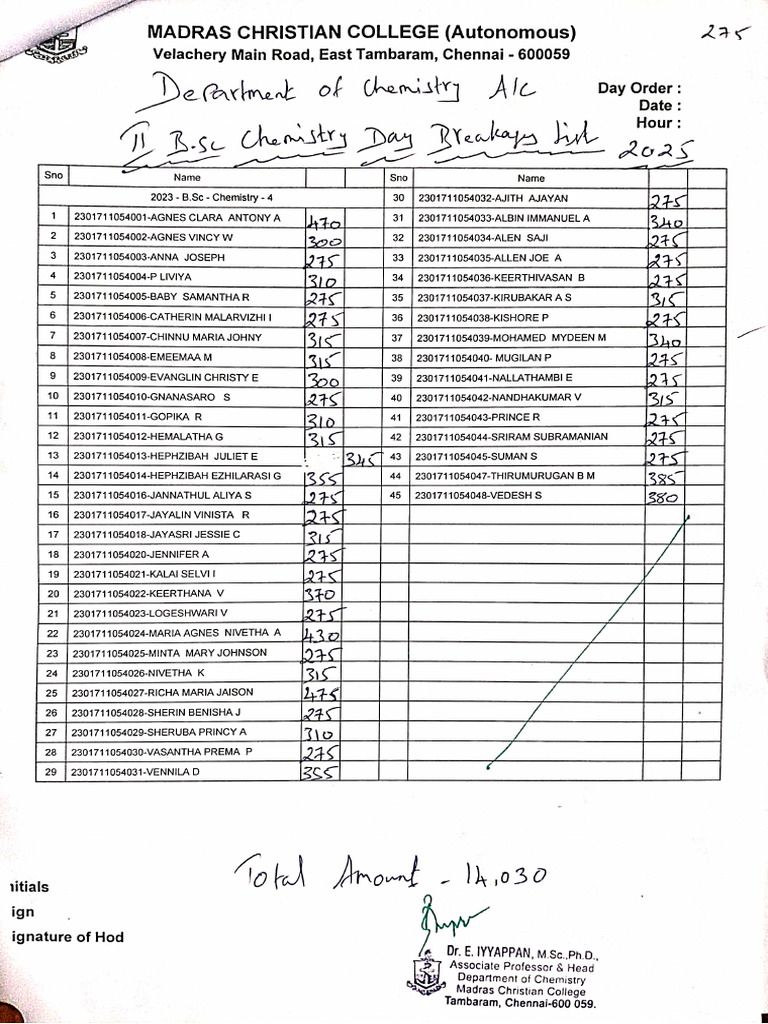 275
MADRAS CHRISTIAN COLLEGE (Autonomous)
Velachery Main Road, East Tambaram, Chennai - 600059
Department of Chemistry A/C
Day Order :
Date :
Hour :
II B.Sc Chemistry Day Breakages List 2025
Sno Name Sno Name
2023 - B.Sc - Chemistry - 4 30 2301711054032-AJITH AJAYAN 275
1 2301711054001-AGNES CLARA ANTONY A 470 31 2301711054033-ALBIN IMMANUEL A 340
2 2301711054002-AGNES VINCY W 300 32 2301711054034-ALEN SAJI 275
3 2301711054003-ANNA JOSEPH 275 33 2301711054035-ALLEN JOE A 275
4 2301711054004-P LIVIYA 310 34 2301711054036-KEERTHIVASAN B 275
5 2301711054005-BABY SAMANTHA R 275 35 2301711054037-KIRUBAKAR A S 315
6 2301711054006-CATHERIN MALARVIZHI I 275 36 2301711054038-KISHORE P 275
7 2301711054007-CHINNU MARIA JOHNY 315 37 2301711054039-MOHAMED MYDEEN M 340
8 2301711054008-EMEEMAA M 315 38 2301711054040- MUGILAN P 275
9 2301711054009-EVANGLIN CHRISTY E 300 39 2301711054041-NALLATHAMBI E 275
10 2301711054010-GNANASARO S 275 40 2301711054042-NANDHAKUMAR V 315
11 2301711054011-GOPIKA R 310 41 2301711054043-PRINCE R 275
12 2301711054012-HEMALATHA G 315 42 2301711054044-SRIRAM SUBRAMANIAN 275
13 2301711054013-HEPHZIBAH JULIET E 345 43 2301711054045-SUMAN S 275
14 2301711054014-HEPHZIBAH EZHILARASI G 355 44 2301711054047-THIRUMURUGAN B M 385
15 2301711054016-JANNATHUL ALIYA S 275 45 2301711054048-VEDESH S 380
16 2301711054017-JAYALIN VINISTA R 275
17 2301711054018-JAYASRI JESSIE C 315
18 2301711054020-JENNIFER A 275
19 2301711054021-KALAI SELVI I 275
20 2301711054022-KEERTHANA V 370
21 2301711054023-LOGESHWARI V 275
22 2301711054024-MARIA AGNES NIVETHA A 430
23 2301711054025-MINTA MARY JOHNSON 275
24 2301711054026-NIVETHA K 315
25 2301711054027-RICHA MARIA JAISON 475
26 2301711054028-SHERIN BENISHA J 275
27 2301711054029-SHERUBA PRINCY A 310
28 2301711054030-VASANTHA PREMA P 275
29 2301711054031-VENNILA D 355
Total Amount - 14,030
nitials
ign
ignature of Hod
Dr. E. IYYAPPAN, M.Sc.,Ph.D.,
Associate Professor & Head
Department of Chemistry
Madras Christian College
Tambaram, Chennai-600 059.